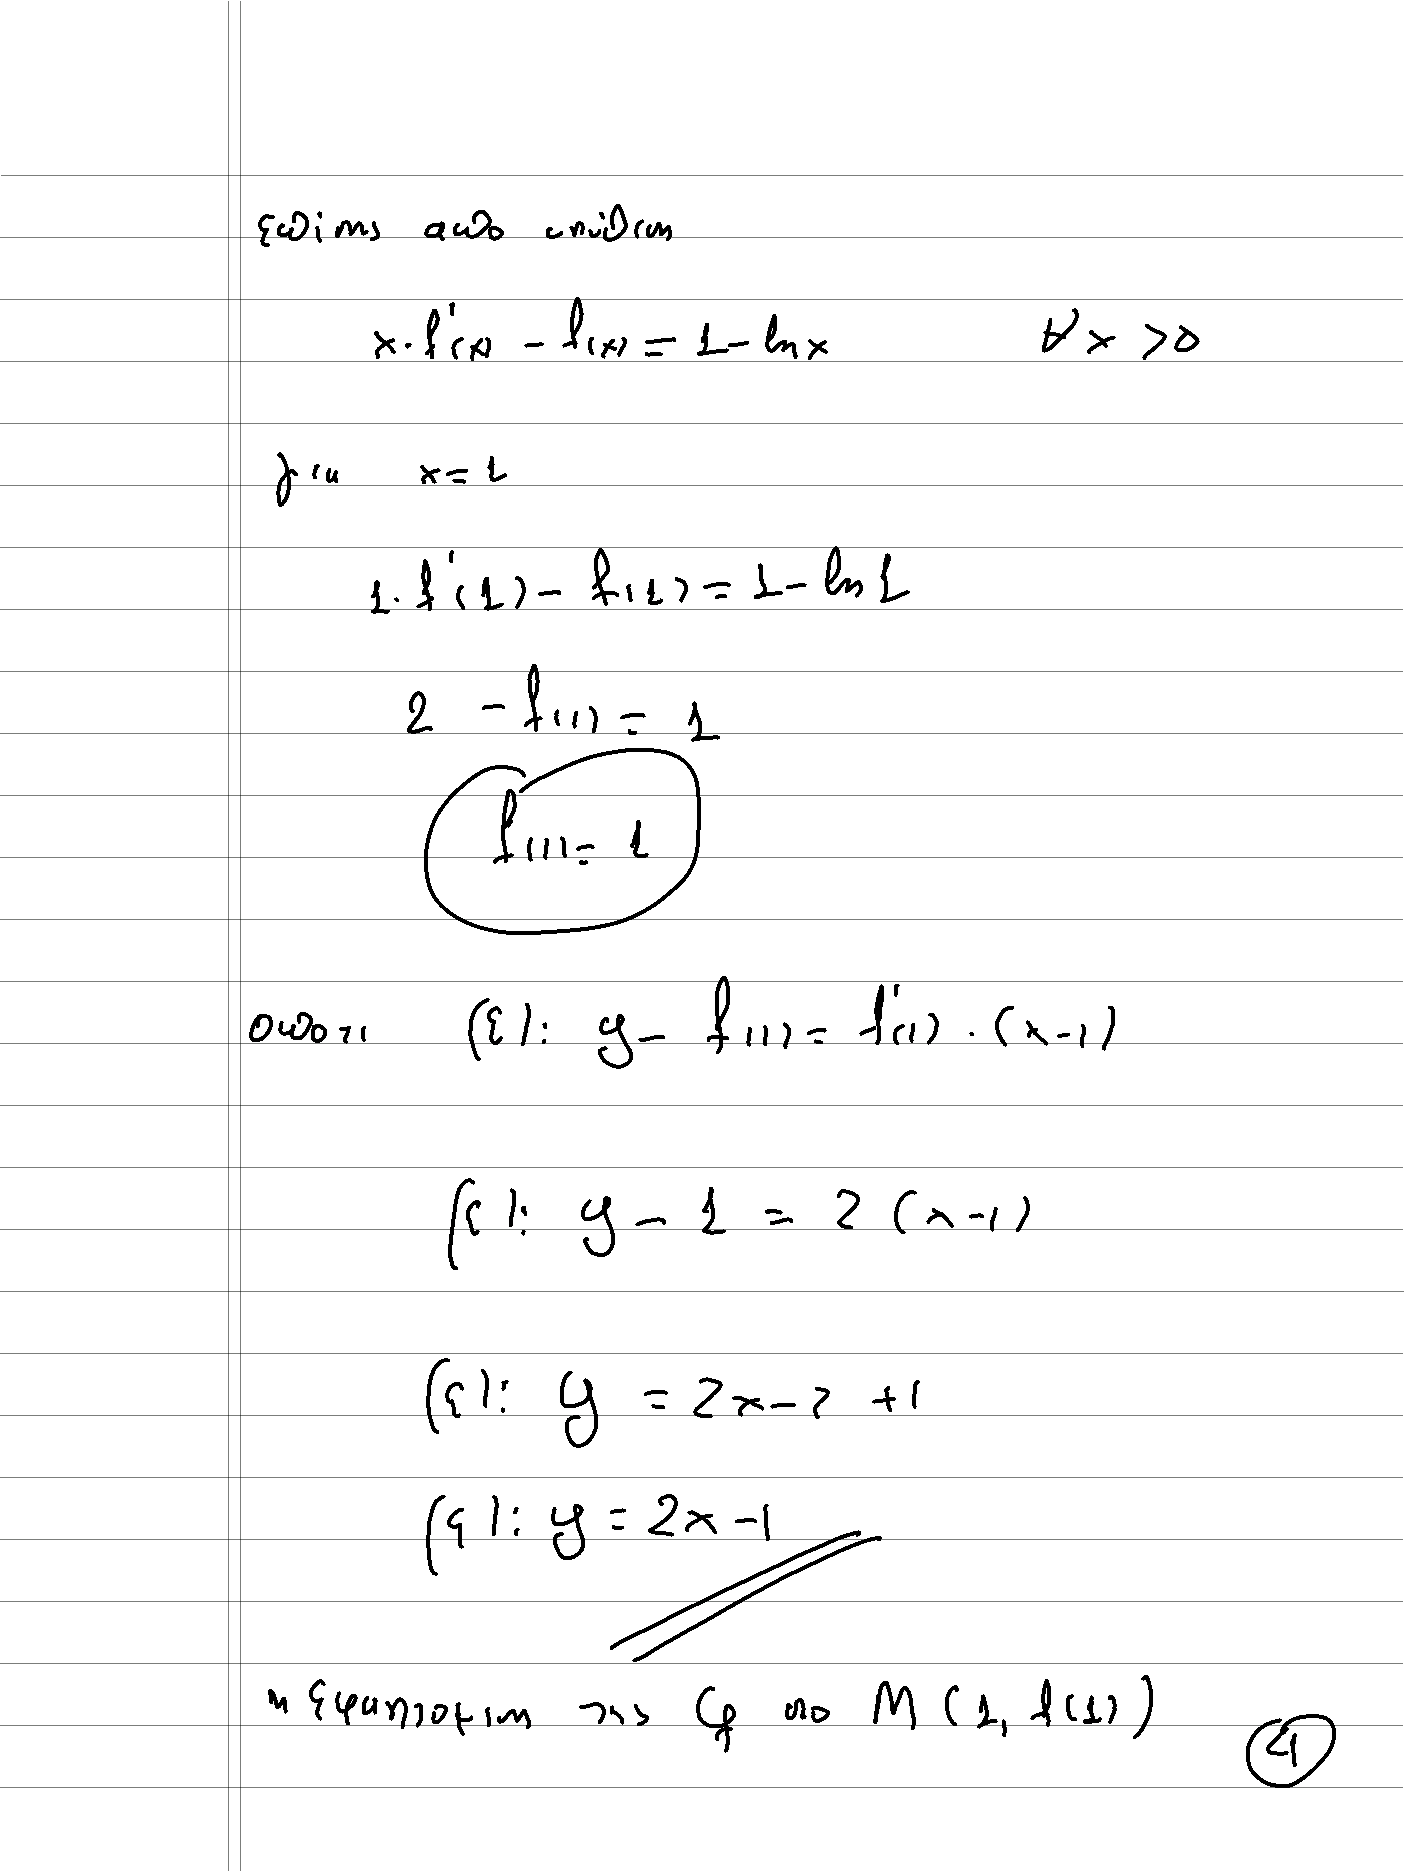 επίσης από υπόθεση
x·f'(x) - f(x) = 1 - lnx ∀x >0
για x=1
1·f'(1) - f(1) = 1 - ln1
2 - f(1) = 1
f(1) = 1
οπότε (ε): y - f(1) = f'(1)·(x-1)
(ε): y - 1 = 2(x-1)
(ε): y = 2x-2+1
(ε): y = 2x-1
η εφαπτομένη της Cf στο M(1, f(1))
4